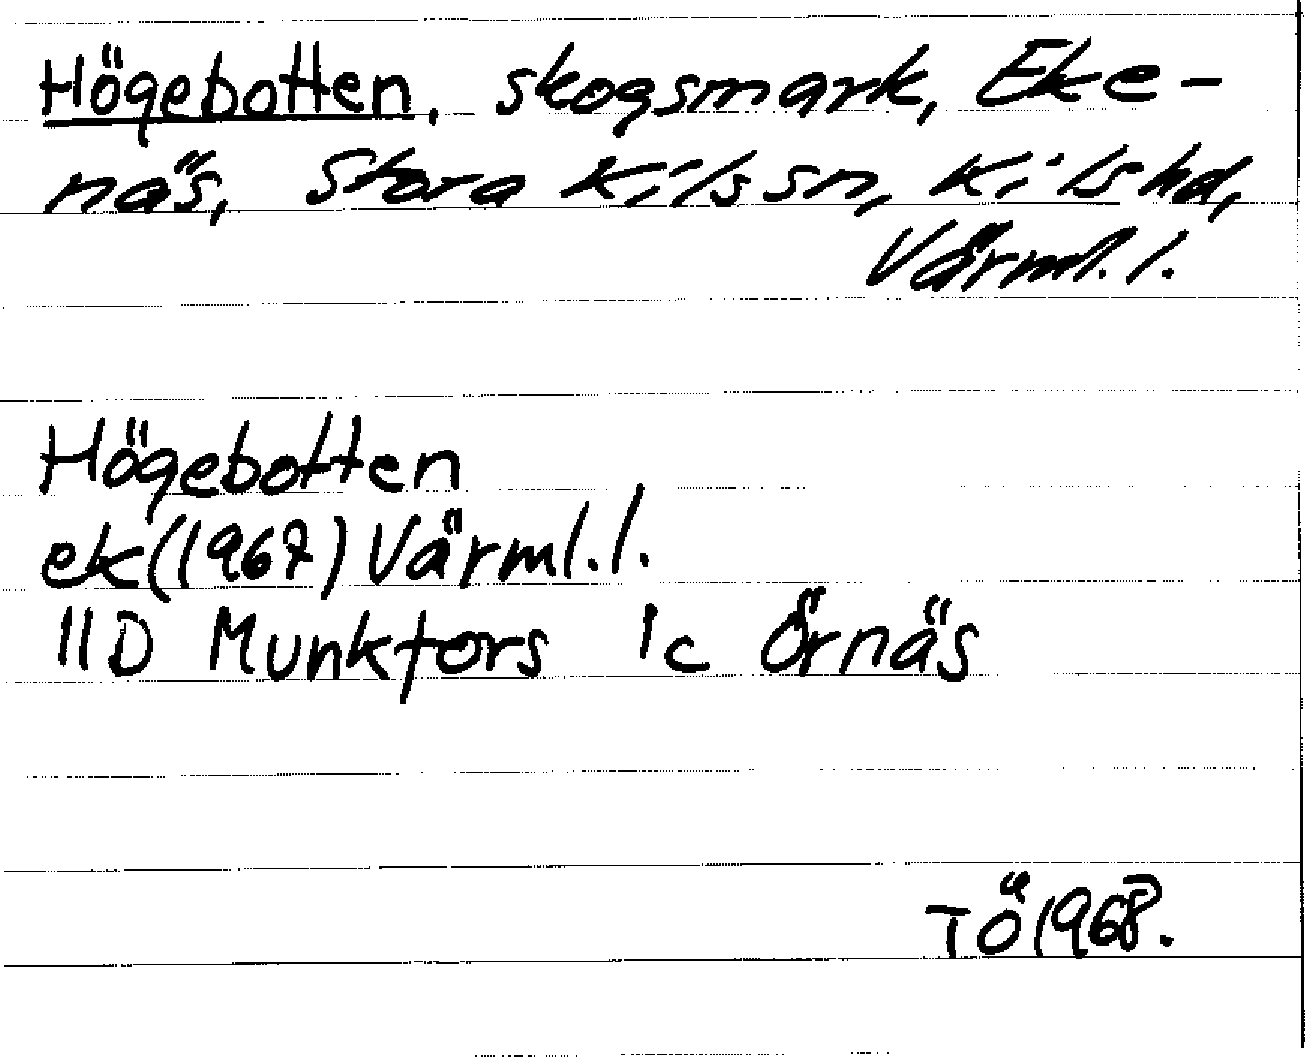 Högebotten, skogsmark, Eke-
näs, Stora Kils sn, Kils hd,
Värml. l.
Högebotten
ek (1967) Värml. l.
11D Munkfors 1c Örnäs
TÖ 1968.